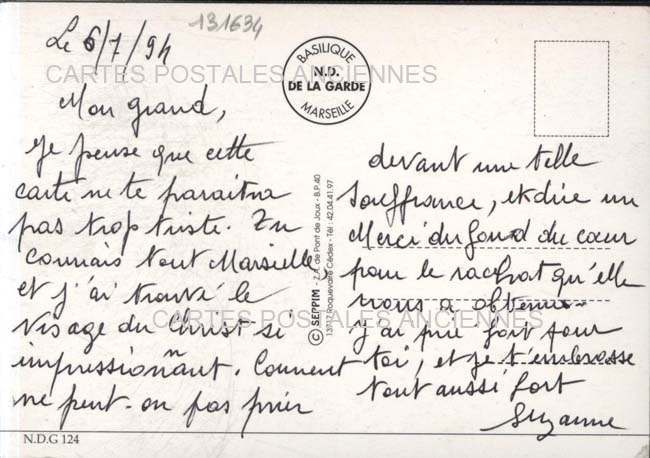 131634
Le 6/7/94
BASILIQUE
N.D.
DE LA GARDE
MARSEILLE
CARTES POSTALES ANCIENNES
Mon grand,
Je pense que cette
carte ne te paraîtra
pas trop triste. Tu
connais tout Marseille,
et j'ai trouvé le
visage du Christ si
impressionnant. Comment
ne peut-on pas prier
devant une telle
souffrance, et dire un
Merci du fond du cœur
pour le rachat qu'elle
nous a obtenu.
j'ai prié fort pour
toi, et je t'embrasse
tout aussi fort
Suzanne
© SEPPIM - Z.A. de Pont de Joux - B.P. 40
13717 Roquevaire Cédex - Tél : 42.04.41.97
CARTES POSTALES ANCIENNES
N.D.G 124